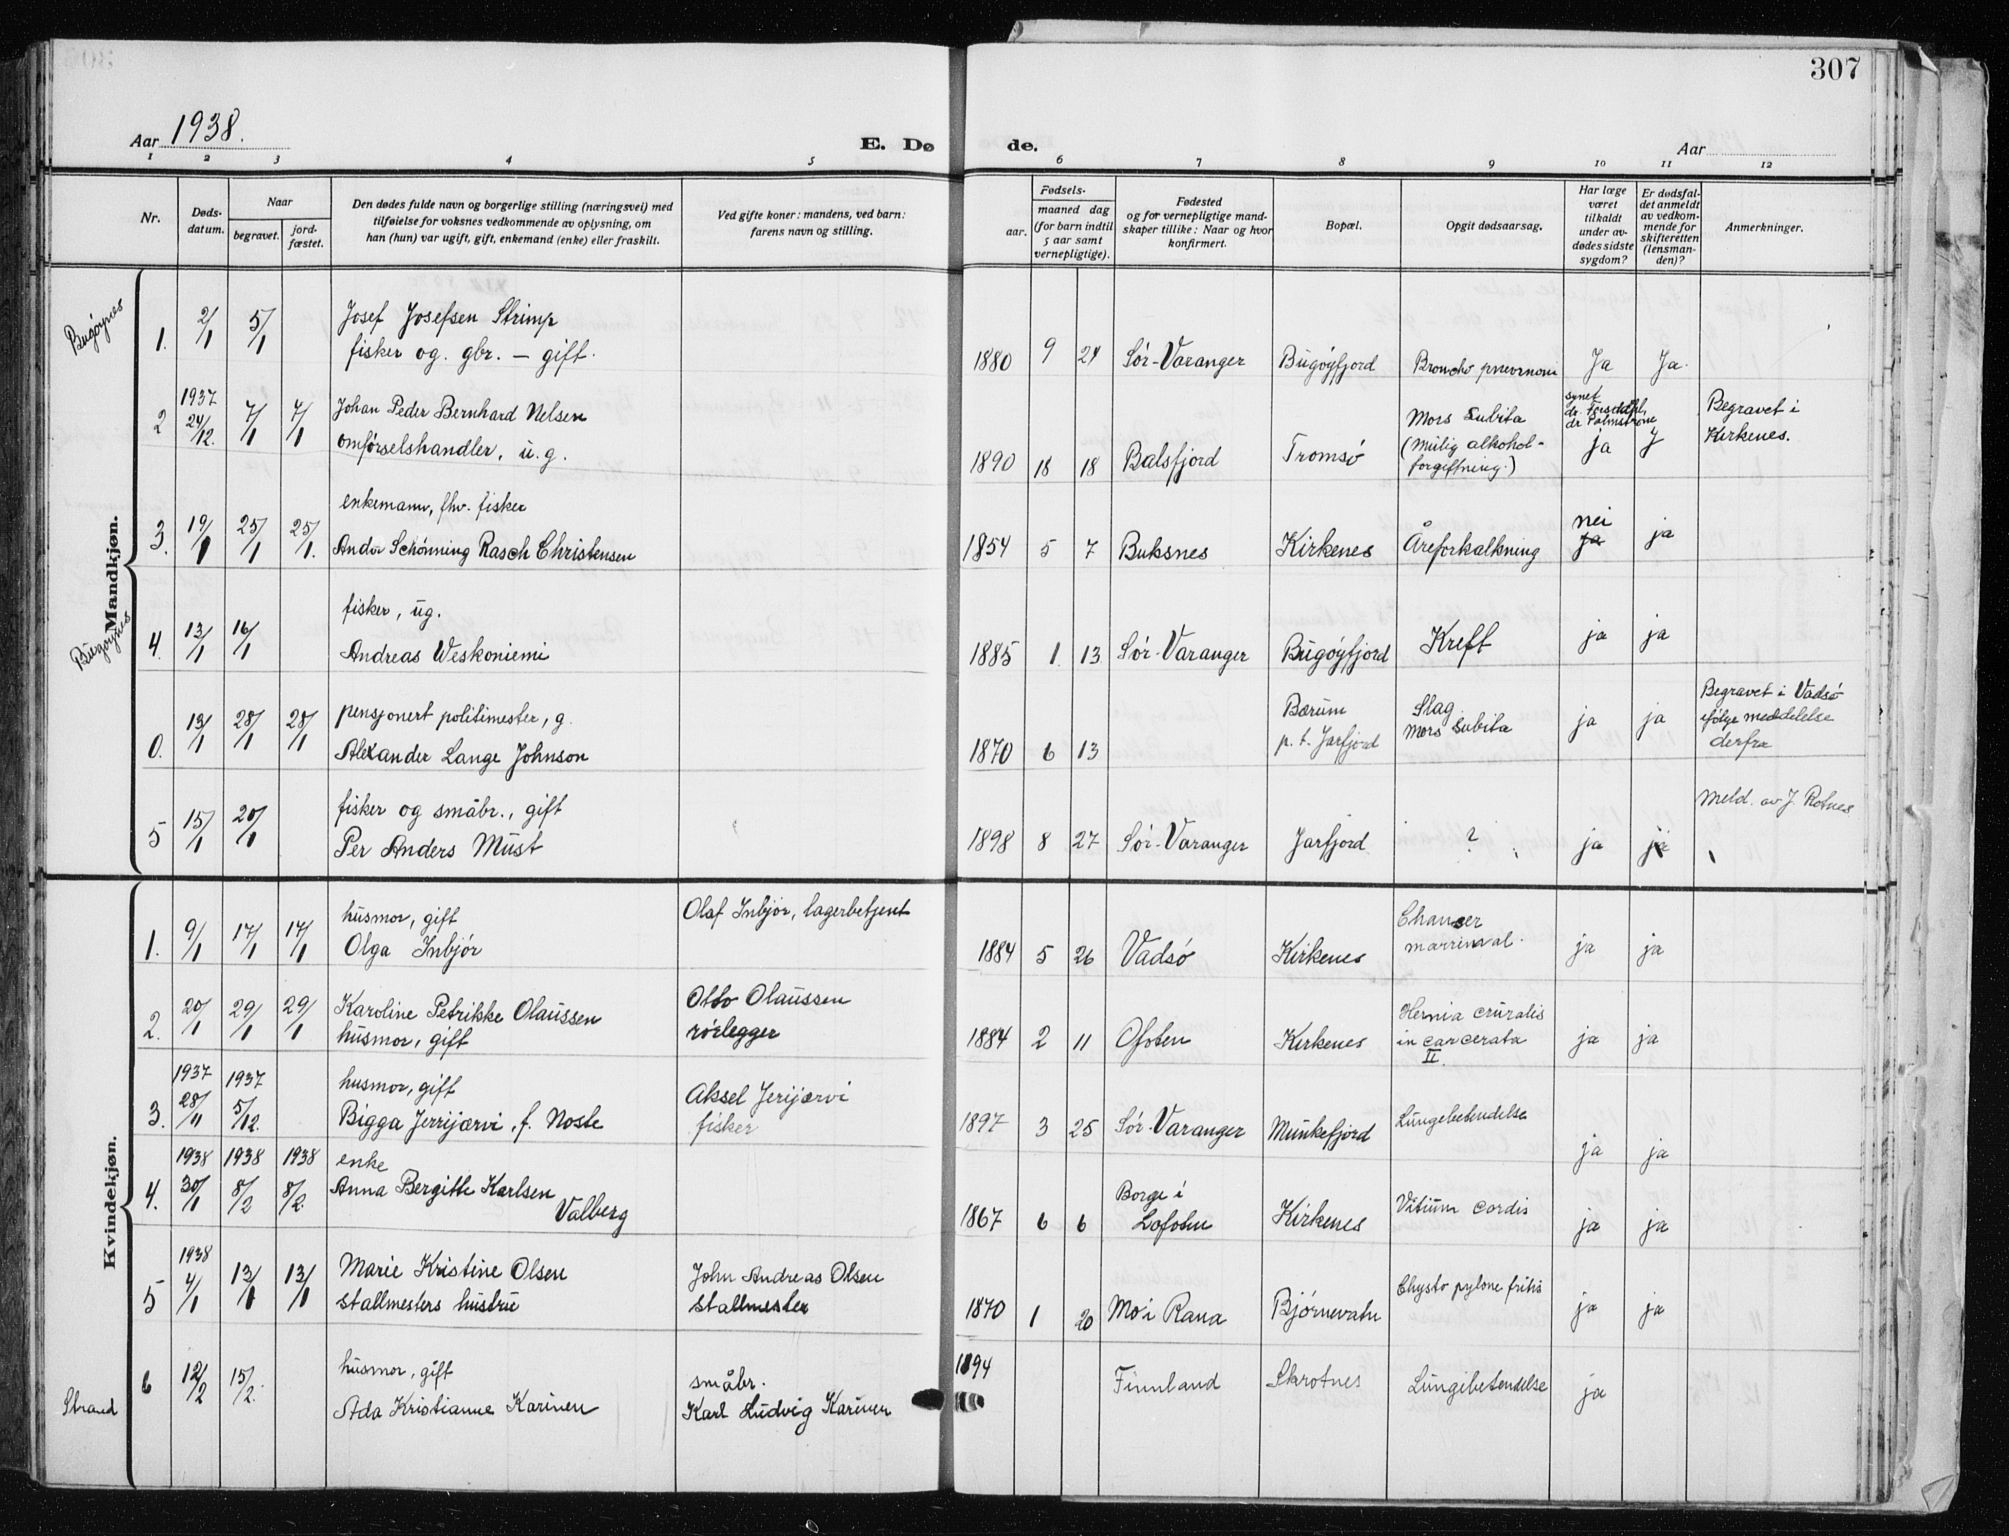 307
Aar 1938.
E. Dø
de.
Aar
1 2 3 4 5 6 7 8 9 10 11 12
Nr.
Døds-
datum.
Naar
begravet.
jord-
fæstet.
Den dødes fulde navn og borgerlige stilling (næringsvei) med
tilføielse for voksnes vedkommende av oplysning, om
han (hun) var ugift, gift, enkemand (enke) eller fraskilt.
Ved gifte koner: mandens, ved barn:
farens navn og stilling.
Fødsels-
aar.
maaned dag
(for barn indtil
5 aar samt
vernepligtige).
Fødested
og for vernepligtige mand-
skaper tillike: Naar og hvor
konfirmert.
Bopæl.
Opgit dødsaarsag.
Har læge
været
tilkaldt
under av-
dødes sidste
sygdom?
Er dødsfal-
det anmeldt
av vedkom-
mende for
skifteretten
(lensman-
den)?
Anmerkninger.
Mandkjøn.
Bugøynes
1. 2/1 5/1
Josef Josefsen Strimp
fisker og. gbr. – gift.
1880 9 24 Sør-Varanger Bugøyfjord Broncho pnevmoni Ja Ja.
2 1937 24/12. 7/1 7/1
Johan Peder Bernhard Nelsen
omførselshandler, u.g.
1890 18 18 Balsfjord Tromsø
Mors Subita
(Mulig alkohol-
forgiftning.)
synet
dr. Palmstrøm
ja
J
Begravet i
Kirkenes.
3. 19/1 25/1 25/1.
enkemann, fhv. fisker
Andor Schönning Rasch Christensen
1854 5 7 Buksnes Kirkenes Åreforkalkning
nei
ja
ja
Bugøynes
4. 13/1 16/1
fisker, ug.
Andreas Weskoniemi
1885 1. 13 Sør-Varanger Bugøyfjord Kreft ja ja
0. 13/1 28/1 28/1
pensjonert politimester, g.
Alexander Lange Johnson
1870 6 13
Bærum
p. t. Jarfjord
Slag
Mors Subita
ja ja
Begravet i Vadsø
ifølge meddelelse
derfra
5 15/1 20/1
fisker og småbr., gift
Per Anders Must
1898 8 27 Sør-Varanger Jarfjord ? ja ja
Meld. av J. Rotnes
Kvindekjøn.
1. 9/1 17/1 17/1
husmor, gift
Olga Inbjør
Olaf Inbjør, lagerbetjent
1884 5 26 Vadsø Kirkenes
ja ja
2. 20/1 29/1 29/1
Karoline Petrikke Olaussen
husmor, gift
Otto Olaussen
rørlegger
1884 2 11 Ofoten Kirkenes
Hernia cruralis
in carcerata
II
ja ja
3. 1937 28/11 1937 5/12.
husmor, gift
Bigga Jerrijærvi, f. Noste
Aksel Jerijærvi
fisker
1897 3 25 Sør-Varanger Munkefjord Lungebetendelse ja ja
4. 1938 30/1 1938 8/2 1938 8/2.
enke
Anna Bergitte Karlsen
Valberg
1867 6 6
Borge i
Lofoten
Kirkenes Vitium cordis ja ja
5 1938 4/1 13/1 13/1
Marie Kristine Olsen
stallmesters hustru
John Andreas Olsen
stallmester
1870 1 20 Mo i Rana Bjørnevatn Chysto pylone fritis ja ja
Strand
6 12/2 15/2.
husmor, gift
Ada Kristianne Karinen
småbr.
Karl Ludvig Karinen
1894 Finnland Skrotnes Lungebetendelse ja